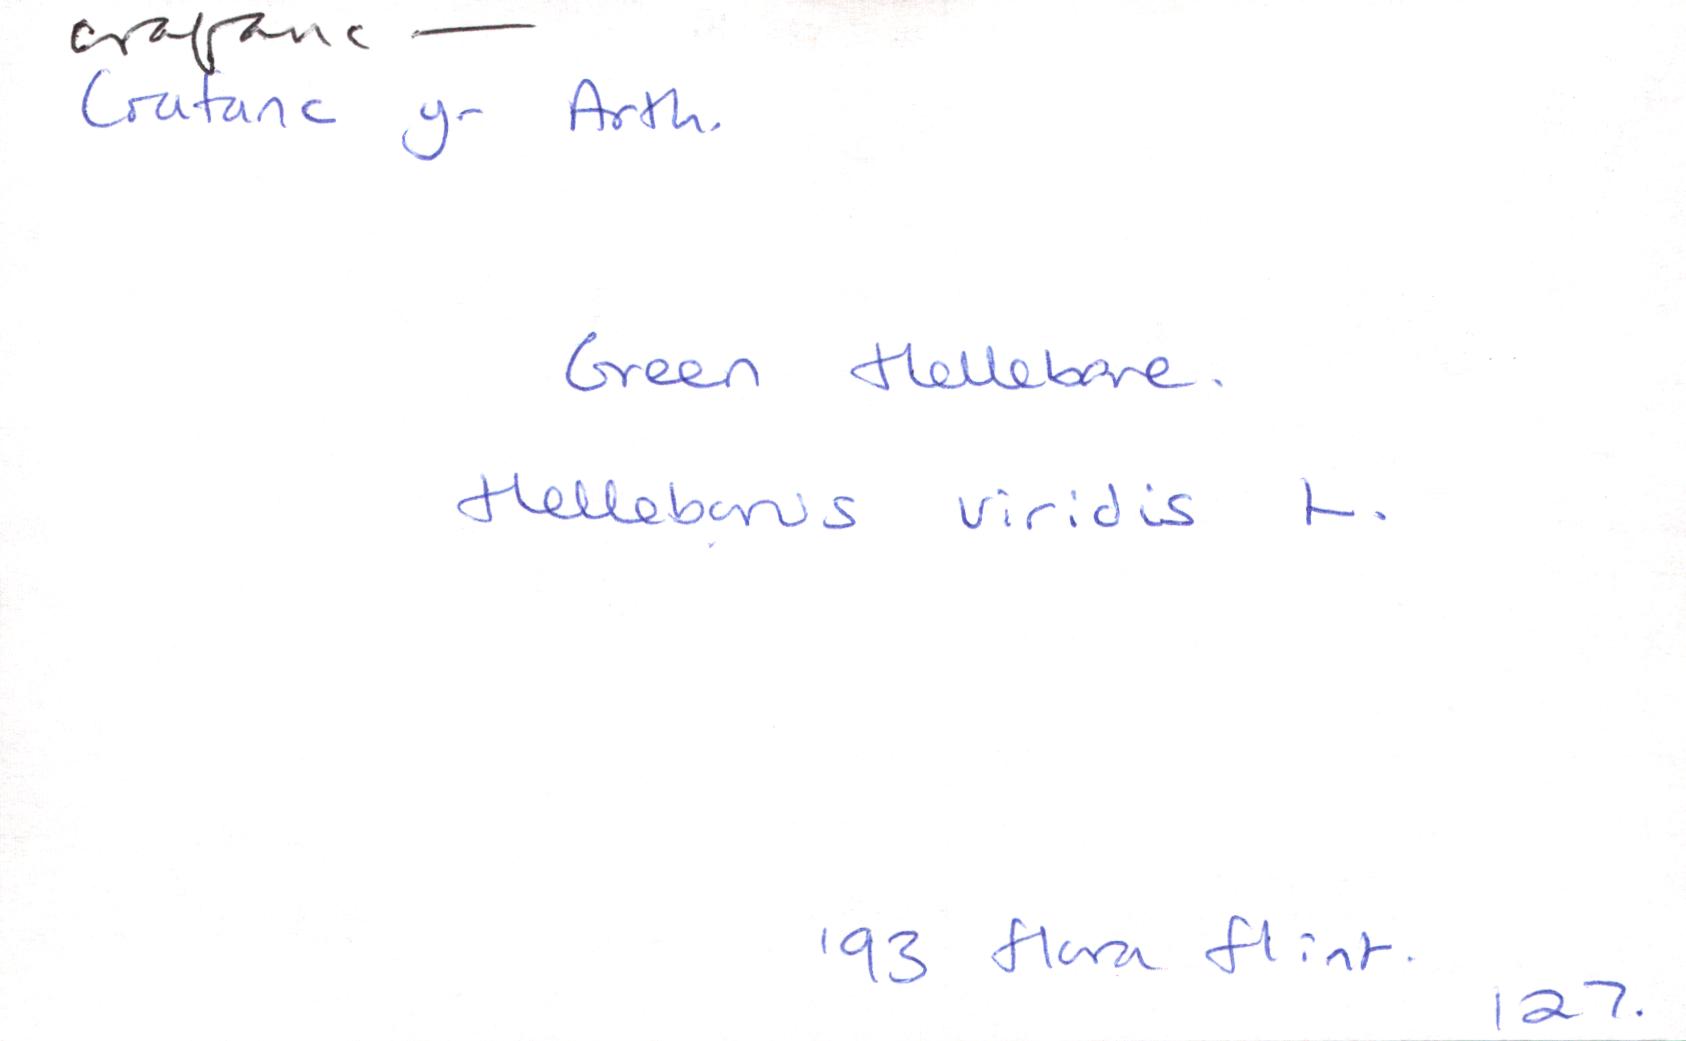 crafanc —
Crafanc yr Arth.
Green Hellebore.
Helleborus viridis L.
'93 flora flint.
127.